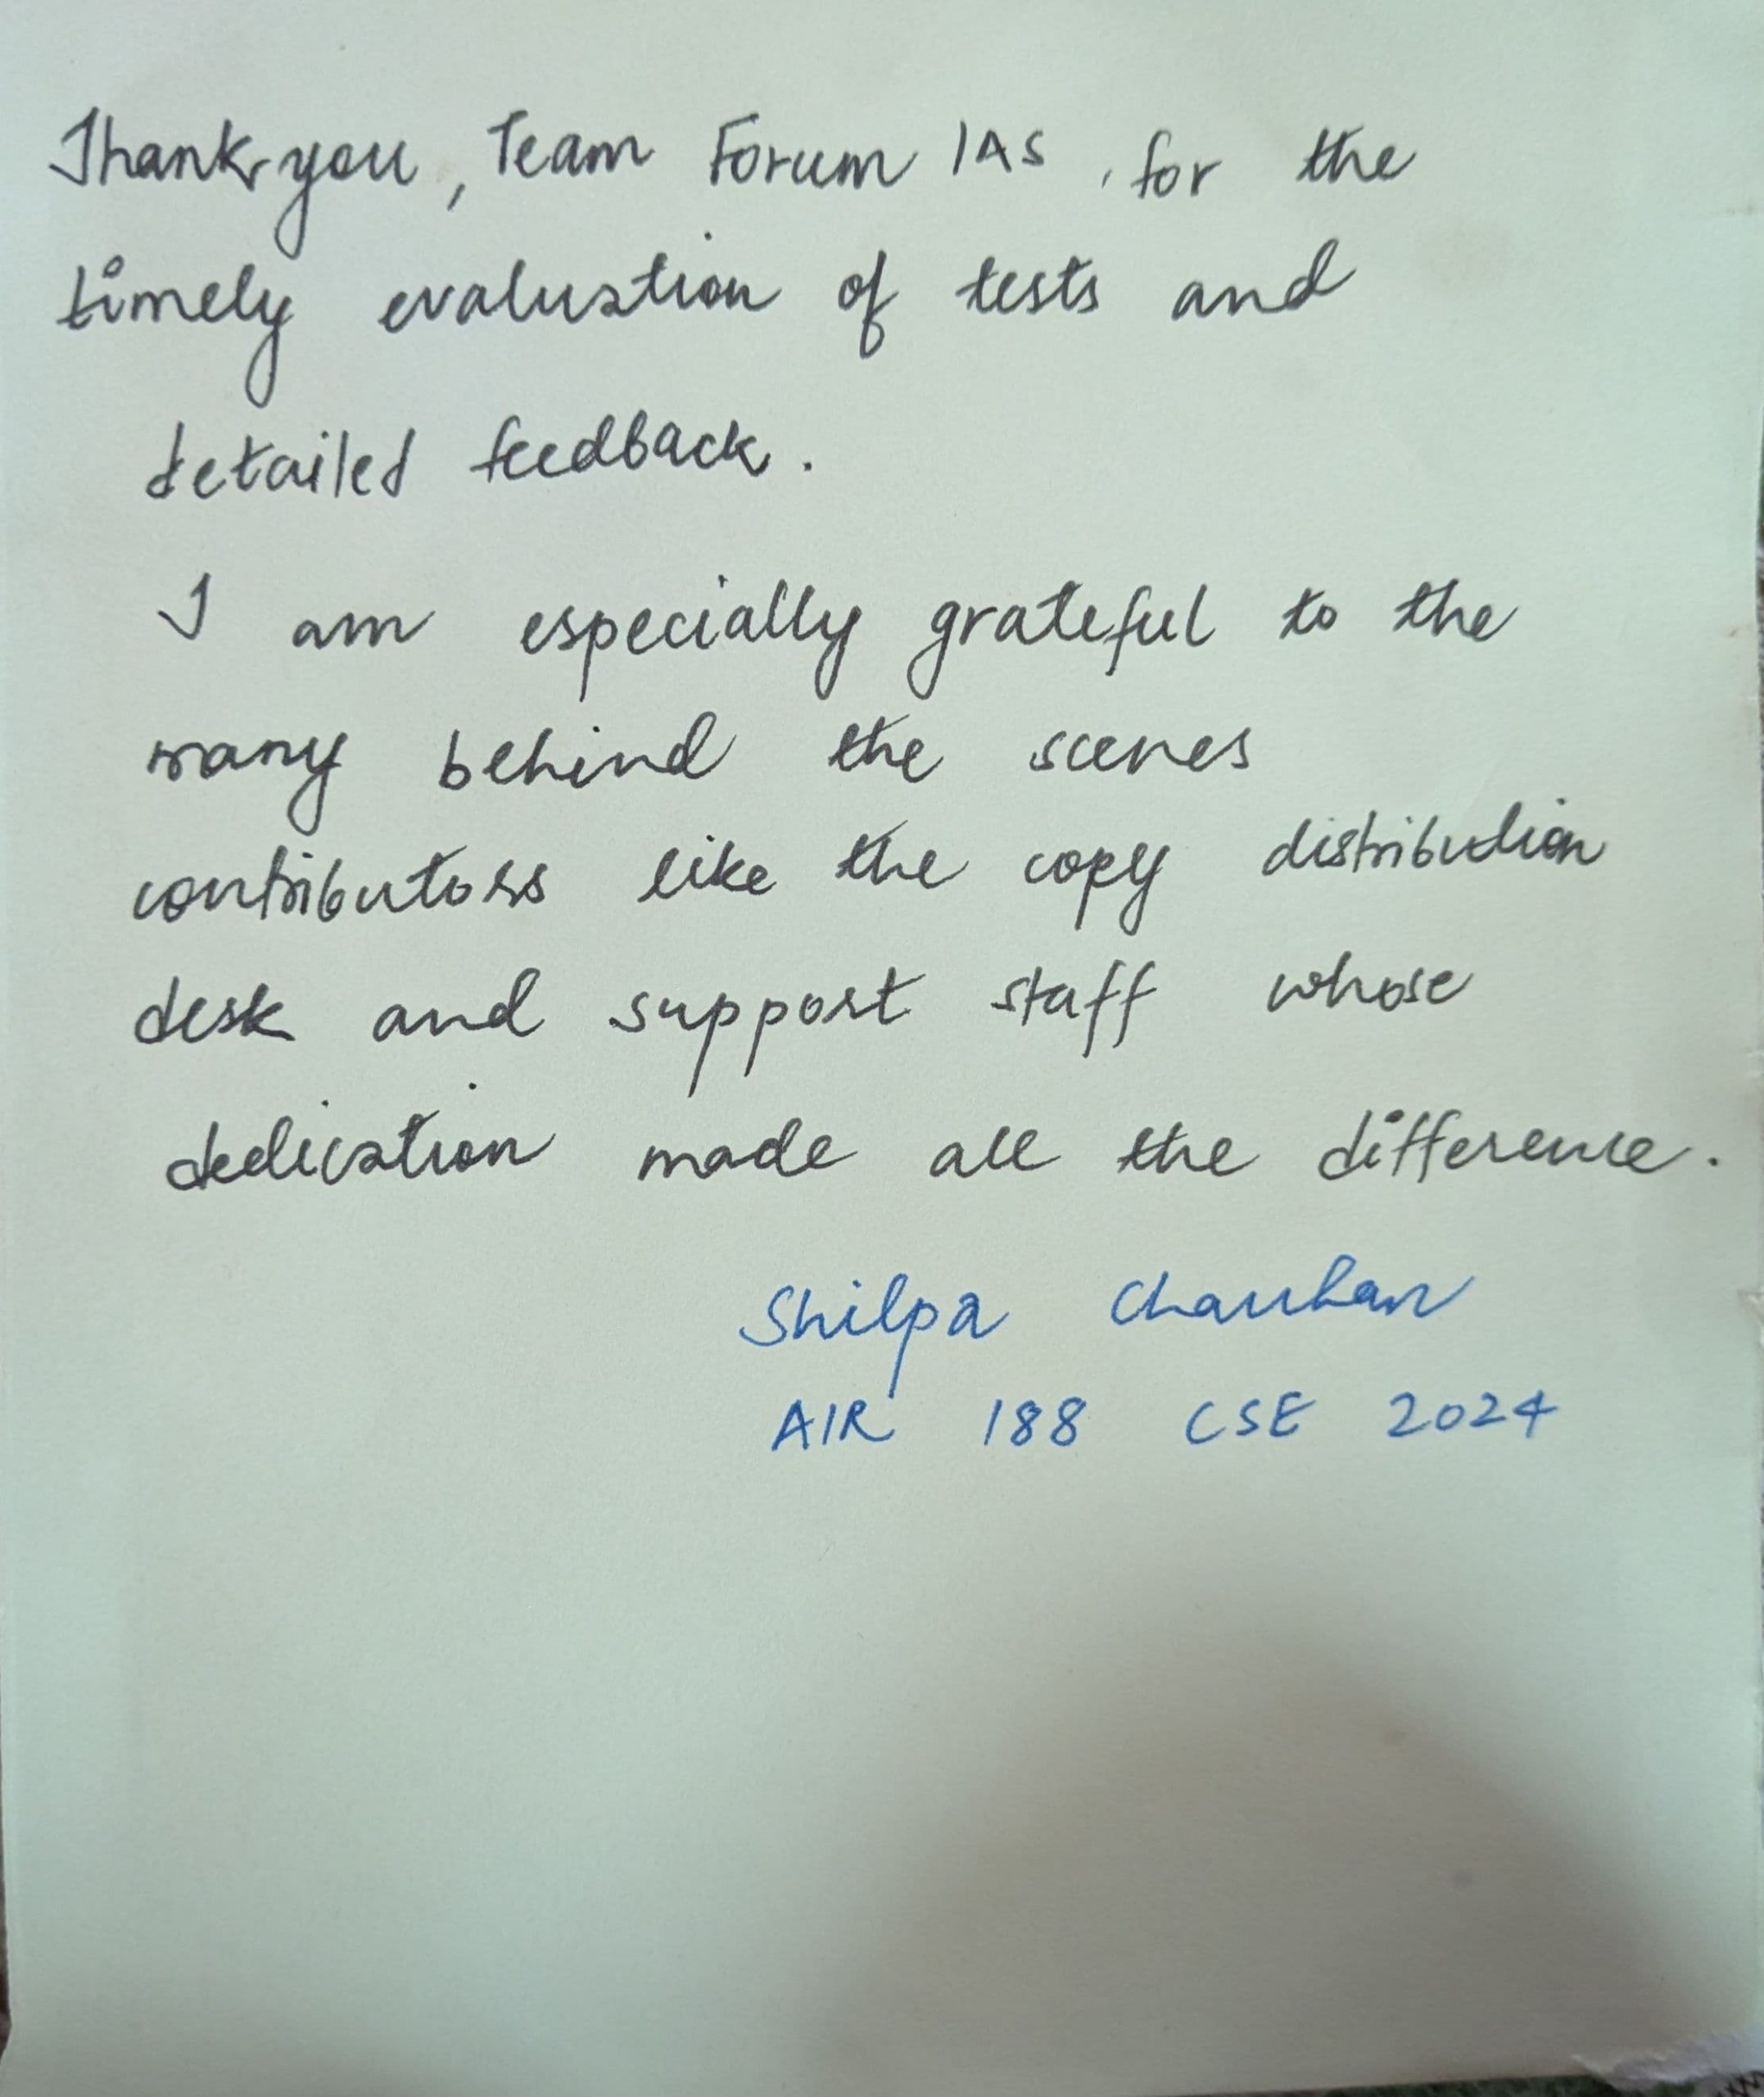 Thank you, Team Forum IAS, for the
timely evaluation of tests and
detailed feedback.
I am especially grateful to the
many behind the scenes
contributors like the copy distribution
desk and support staff whose
dedication made all the difference.
Shilpa Chauhan
AIR 188 CSE 2024